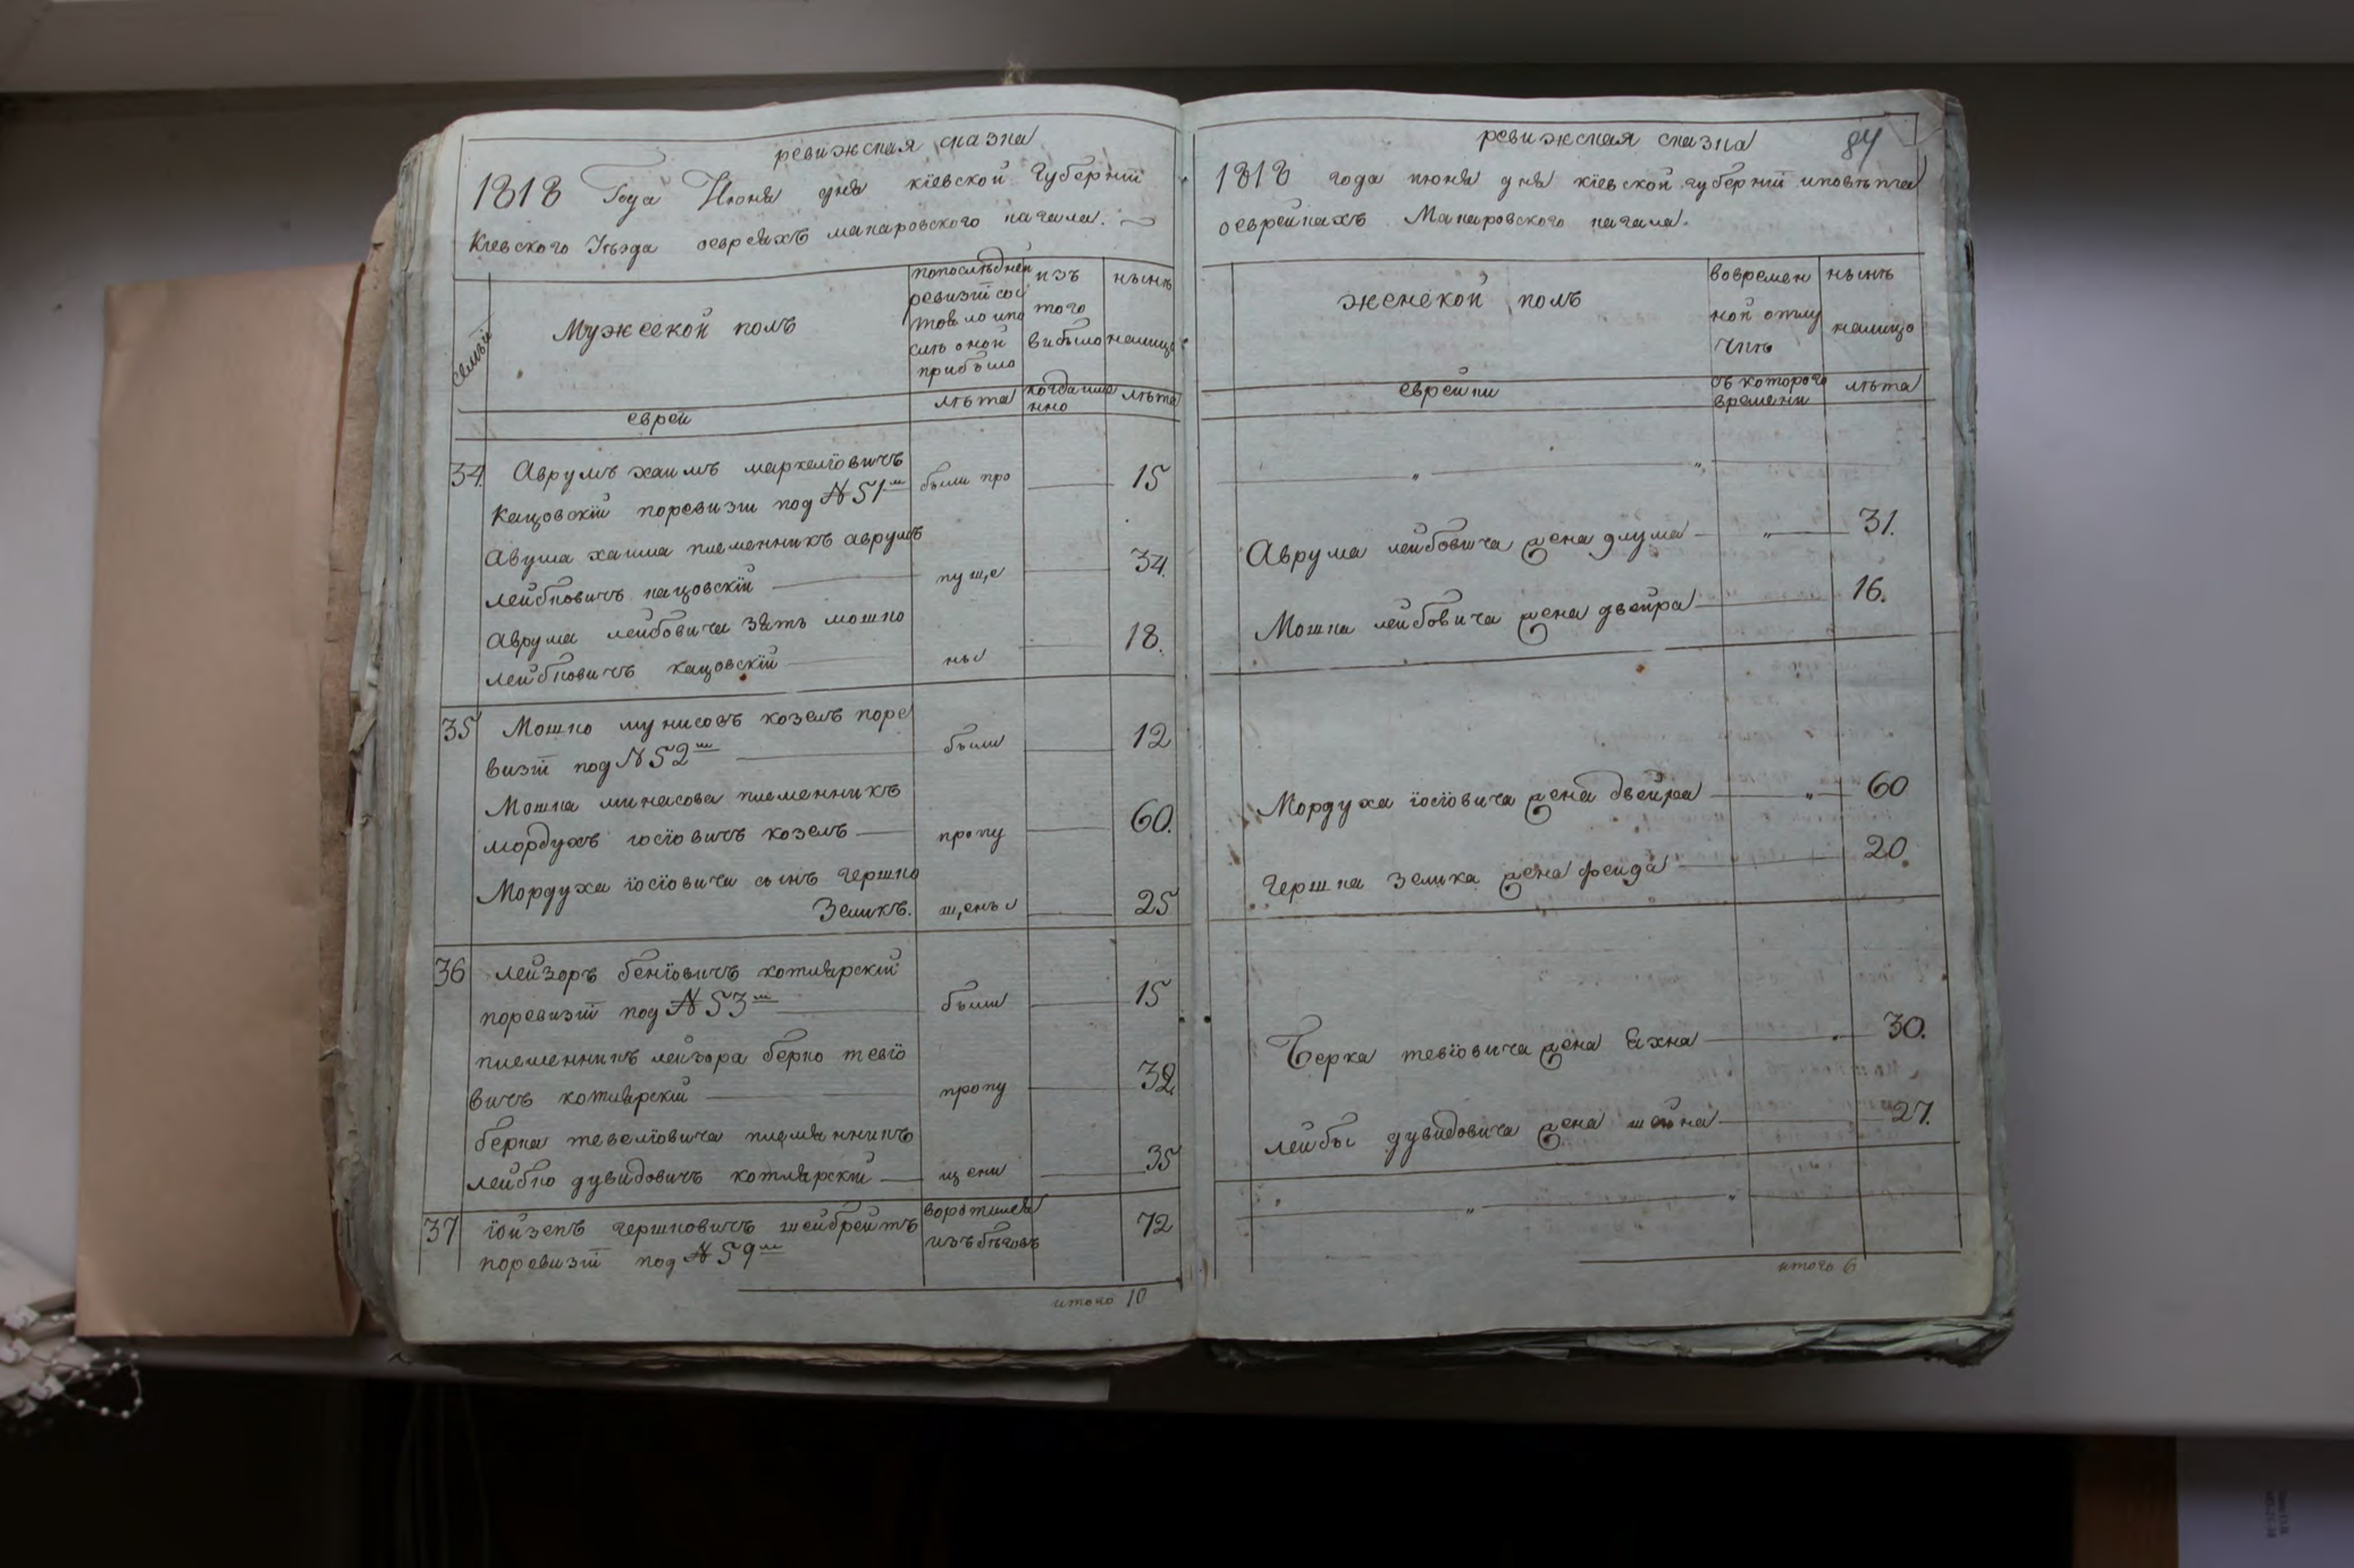 ревижская сказка
1818 Года Июня дня кіевской Губерніи
Кіевского Уѣзда оевреяхъ макаровского кагала.
Семьи
Мужеской полъ
попослѣдней
ревизіи сос
тояло ипо
слѣ оной
прибыло
изъ
того
выбыло
нынѣ
налицо
еврей
лѣта
когда имя
нно
лѣта
34. Аврумъ хаимъ маркеліовичъ
Кацовскій поревизіи под №51м были про 15
Авума хаима племенникъ аврумъ
лейбковичъ кацовскій пуще 34.
Аврума лейбовича зять мошко
лейбковичъ кацовскій ны 18.
35 Мошко мунисовъ козелъ поре
визіи под №52м были 12
Мошка минасова племенникъ
мордухъ іосіовичъ козелъ пропу 60.
Мордуха іосіовича сынъ гершко
Зеликъ. щены 25
36 лейзоръ беніовичъ котлярскій
поревизіи под №53м были 15
племенникъ лейзора берко тевіо
вичъ котлярскій пропу 32
берка тевеліовича племянникъ
лейбко дувидовичъ котлярскій щени 35
37 іойзепъ гершковичъ шейбрейтъ воротился 72
поревизіи под №59м изъ бѣговъ
итого 10
ревижская сказка 84
1818 года июня дня кіевской губерніи иповѣта
оеврейкахъ Макаровского кагала.
женской полъ
вовремен
ной отлу
чкѣ
нынѣ
налицо
еврейки
съ которого
времени
лѣта
Аврума лейбовича жена длума 31.
Мошка лейбовича жена двейра 16.
Мордуха іосіовича жена двейра 60
Гершка зелика жена фейда 20.
Берка тевіовича жена Ехна 30.
лейбы дувидовича жена шейна 27.
итого 6